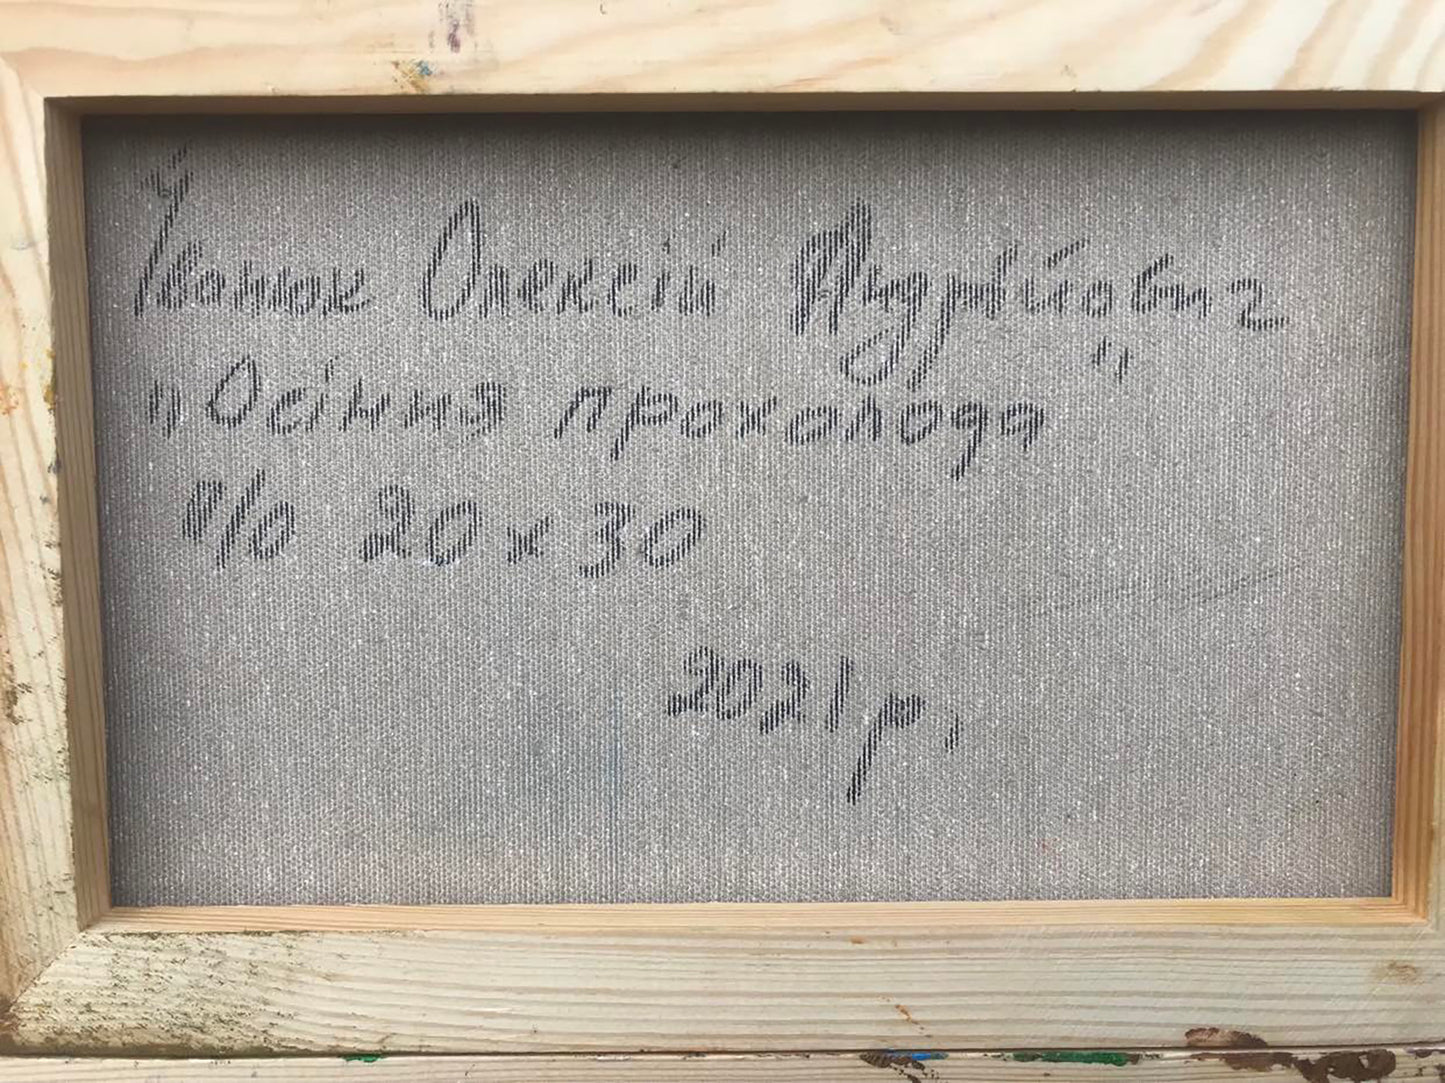 Іванюк Олексій Андрійович
"Осіння прохолода"
п/о 20х30
2021р.